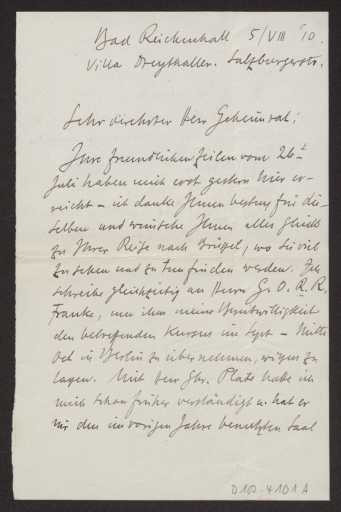 Bad Reichenhall 5/VIII '10.
Villa Dreythaller. Salzburgerstr.
Sehr verehrter Herr Geheimrat!
Ihre freundlichen Zeilen vom 26t
Juli haben mich erst gestern hier er-
reicht – ich danke Ihnen bestens für die-
selben und wünsche Ihnen alles Glück
zu Ihrer Reise nach Brüssel, wo Sie viel
zu sehen und zu tun finden werden. Ich
schreibe gleichzeitig an Herrn G. O. R. R.
Francke, um ihm meine Bereitwilligkeit
den betreffenden Kursus im Sept – Mitte
Oct in Berlin zu übernehmen, wissen zu
lassen. Mit Herr Plate habe ich
mich schon früher verständigt u. hat er
mir den im vorigen Jahre benutzten Saal
D 100 4101 A